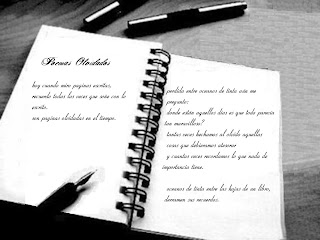 Poemas Olvidados
hoy cuando miro paginas escritas,
recuerdo todas las veces que seria con lo
escrito.
son paginas olvidadas en el tiempo.
perdida entre oceanos de tinta esta me
pregunto:
donde están aquellos dias es que todo parecia
tan maravilloso?
tantas veces hechamos al olvido aquellas
cosas que debieramos atesorar
y cuantas veces recordamos lo que nada de
importancia tiene.
oceanos de tinta entre las hojas de un libro,
derraman sus recuerdos.